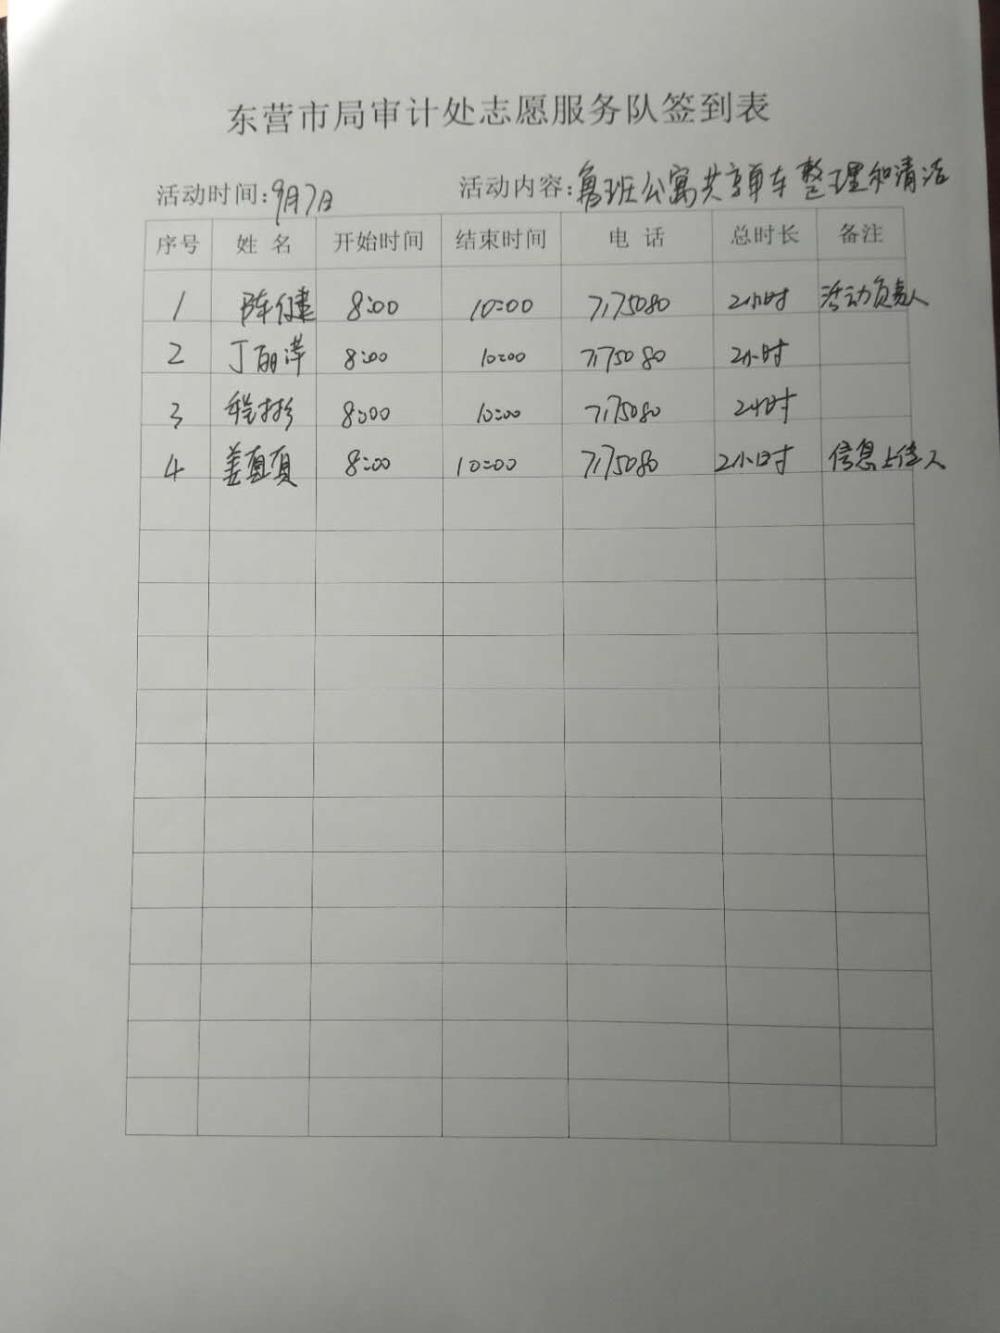 东营市局审计处志愿服务队签到表
活动时间:9月7日 活动内容:鲁班公寓共享单车整理和清洁
序号 姓名 开始时间 结束时间 电话 总时长 备注
1 陈健 8:00 10:00 7175080 2小时 活动负责人
2 丁丽萍 8:00 10:00 7175080 2小时
3 程杉 8:00 10:00 7175080 2小时
4 姜真真 8:00 10:00 7175080 2小时 信息上传人